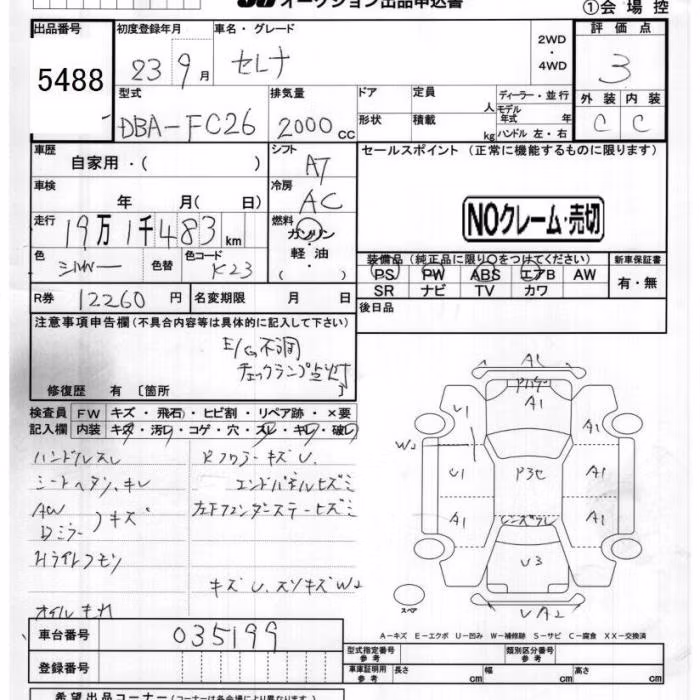 オークション出品申込書
①会場控
出品番号 5488
初度登録年月 23 9月
車名・グレード セレナ
2WD・4WD
評価点 3
外装 C 内装 C
型式 DBA-FC26
排気量 2000 CC
ドア 形状
定員 人 積載 kg
ディーラー・並行
モデル年式 年
ハンドル 左・右
車歴 自家用・( )
シフト AT
セールスポイント (正常に機能するものに限ります)
NOクレーム・売切
車検 年 月( 日)
冷房 AC
走行 19万1千483km
燃料 ガソリン・軽油( )
色 シルバー 色替 色コード K23
装備品 (純正品に限り○をつけてください)
PS PW ABS エアB AW
SR ナビ TV カワ
新車保証書 有・無
R券 12260円 名変期限 月 日
後日品
注意事項申告欄 (不具合内容等は具体的に記入して下さい)
E/G不調
チェックランプ点灯
修復歴 有 [箇所 ]
検査員記入欄
FW キズ・飛石・ヒビ割・リペア跡・×要
内装 キズ・汚レ・コゲ・穴・スレ・キレ・破レ
ハンドルスレ
シートヘタリ、キレ
AW
Dミラー キズ
Hライトクモリ
オイルモレ
Rフロアーキズ U.
エンドパネルヒズミ
左Fフェンダーステーヒズミ
キズ U. スリキズ W2
A1
A1
U1
A1
W2
U1
A1
A1
A1
U3
U A2
スペア
A-キズ E-エクボ U-凹み W-補修跡 S-サビ C-腐食 XX-交換済
車台番号 035199
登録番号
型式指定番号 参考
類別区分番号 参考
車庫証明用 参考 長さ cm 幅 cm 高さ cm
希望出品コーナー